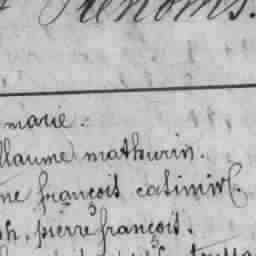 Prénoms.
marie.
llaume mathurin.
ne françois casimir.
ph. pierre françois.